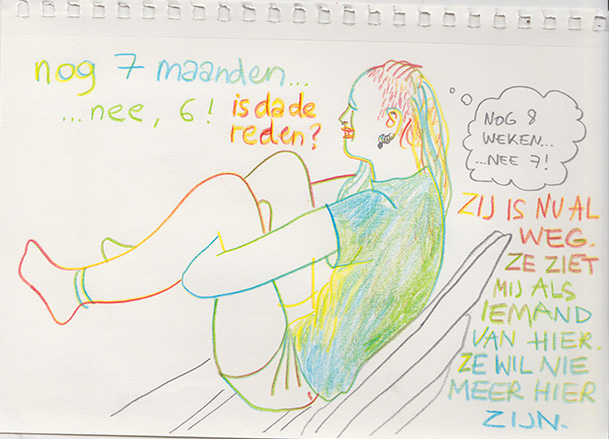 nog 7 maanden...
...nee, 6!
is da de
reden?
NOG 8
WEKEN...
...NEE 7!
ZIJ IS NU AL
WEG.
ZE ZIET
MIJ ALS
IEMAND
VAN HIER.
ZE WIL NIE
MEER HIER
ZIJN.